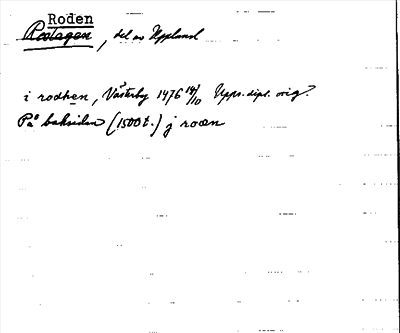 Roden
Roslagen, del av Uppland
i rodhen, Västerby 1476 14/10 Upps. dipl. orig?
På baksidan (1500 t.) j roæn